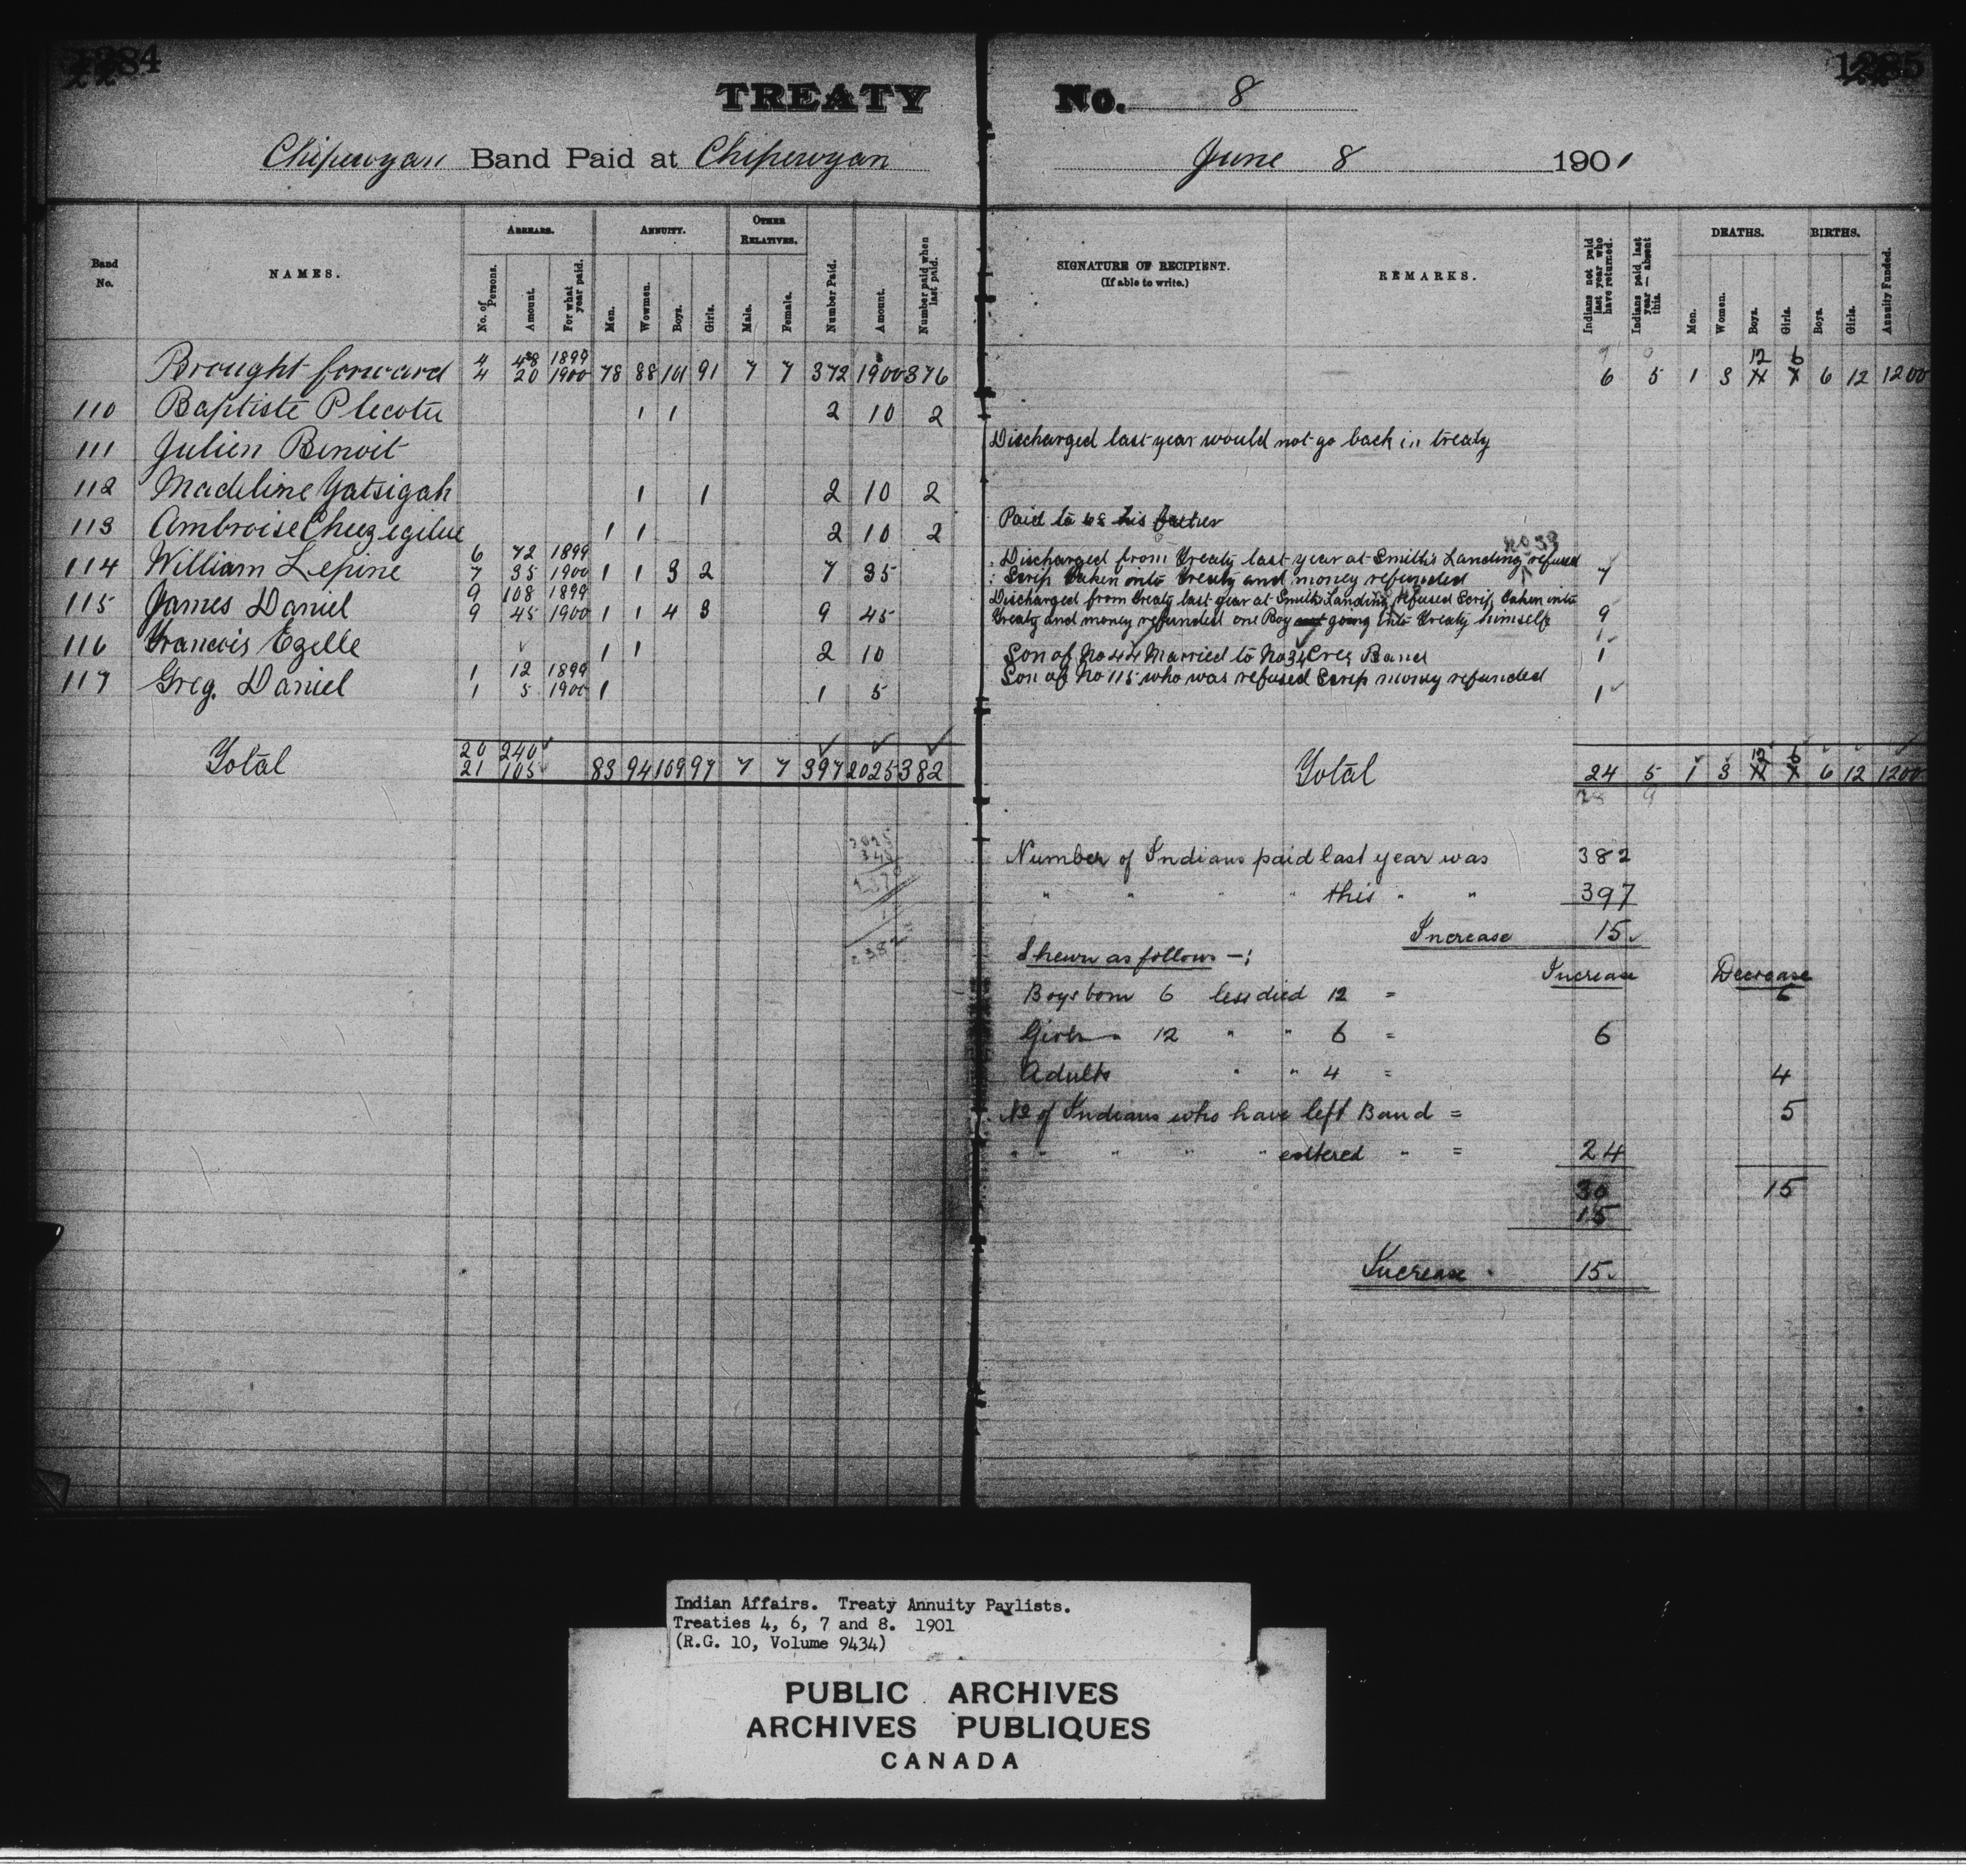 1284
1285
TREATY No. 8
Chipewyan Band Paid at Chipewyan June 8 1901
Band No.
NAMES.
ARREARS.
No. of Persons.
Amount.
For what year paid.
ANNUITY.
Men.
Wowmen.
Boys.
Girls.
OTHER RELATIVES.
Male.
Female.
Number Paid.
Amount.
Number paid when last paid.
SIGNATURE OF RECIPIENT.
(If able to write.)
REMARKS.
Indians not paid last year who have returned.
Indians paid last year — absent this.
DEATHS.
Men.
Women.
Boys.
Girls.
BIRTHS.
Boys.
Girls.
Annuity Funded.
4 48 1899 12 6
Brought forward 4 20 1900 78 88 101 91 7 7 372 1900 376 6 5 1 3 6 12 1200
110 Baptiste Plecotu 1 1 2 10 2
111 Julien Benoit Discharged last year would not go back in treaty
112 Madeline Yatsigah 1 1 2 10 2
113 Ambroise Cheezegilue 1 1 2 10 2 Paid to 68 his father
6 72 1899 Discharged from Treaty last year at Smith's Landing no 33 refused
114 William Lepine 7 35 1900 1 1 3 2 7 35 Scrip taken into treaty and money refunded 7
9 108 1899 Discharged from treaty last year at Smith's Landing refused Scrip, taken into
115 James Daniel 9 45 1900 1 1 4 3 9 45 treaty and money refunded one Boy going into treaty himself 9
116 Francois Ezelle 1 1 2 10 Son of No 44 Married to No 34 Cree Band 1 1
1 12 1899 Son of No 115 who was refused Scrip money refunded
117 Greg. Daniel 1 5 1900 1 1 5 1
20 240 12 6
Total 21 105 83 94 109 97 7 7 397 2025 382 Total 24 5 1 3 6 12 1200
28 9
2025
345
Number of Indians paid last year was 382
" " " " this " " 397
Increase 15
Shewn as follows —:
Increase Decrease
Boys born 6 less died 12 = 6
Girls 12 " " 6 = 6
Adults " " 4 = 4
No of Indians who have left Band = 5
" " " " " entered " = 24
30 15
15
Increase 15
Indian Affairs. Treaty Annuity Paylists.
Treaties 4, 6, 7 and 8. 1901
(R.G. 10, Volume 9434)
PUBLIC ARCHIVES
ARCHIVES PUBLIQUES
CANADA